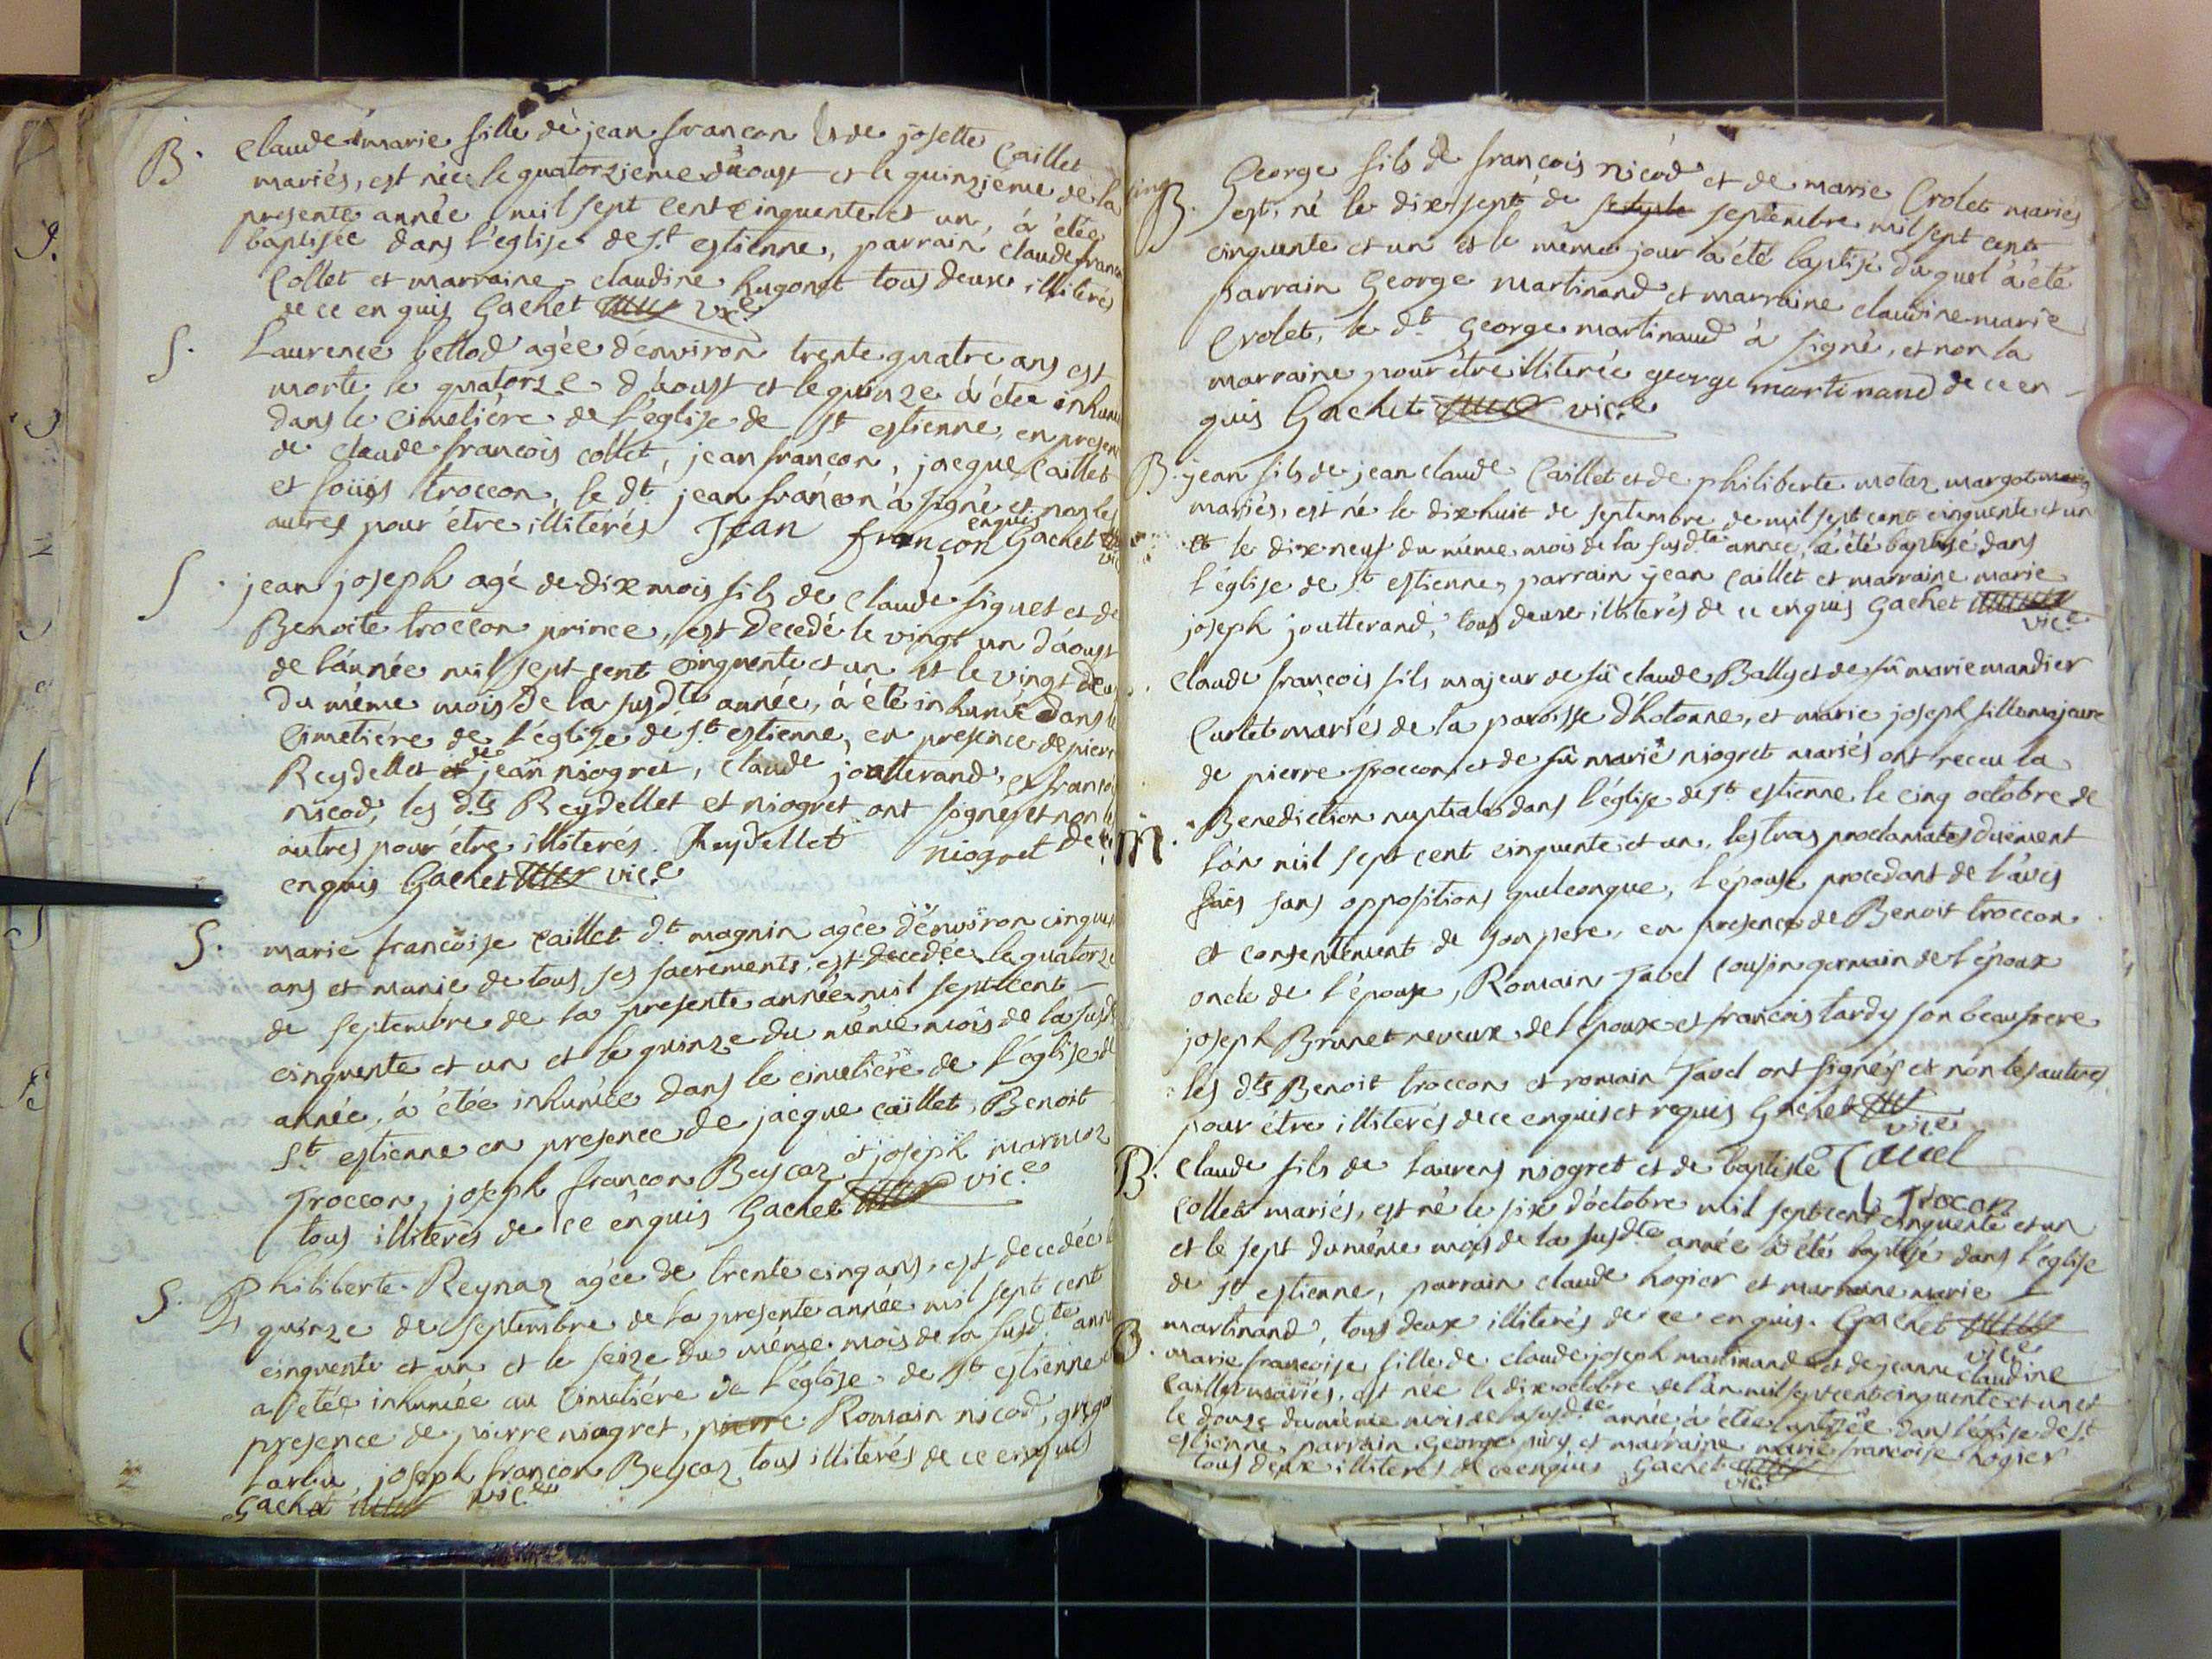 B. Claude marie fille de jean françon et de josette Caillet
mariés, est née le quatorzieme d'aoust et le quinzième de la
presente année mil sept cent cinquente et un, à étée
baptisée dans l'eglise de st estienne, parrain claude françois
Collet et marraine claudine hugonet tous deux illiterés
de ce enquis Gachet vic.e
S. Laurence bellod agée d'environ trente quatre ans est
morte le quatorze d'aoust et le quinze à été inhumée
dans le cimetière de l'eglise de st estienne, en presence
de claude francois collet, jean françon, jacque Caillet
et troccon, le dt jean françon à signé et non les
autres pour étre illitérés Jean françon enquis Gachet vic
S. jean joseph agé de dix mois fils de claude figuet et de
Benoite troccon prince, est decedé le vingt un d'aoust
de l'année mil sept cent cinquente et un et le vingt deux
du même mois de la susdte année, à été inhumé dans le
Cimetière de l'église de st estienne, en presence de pierre
Reydellet et de jean niogret, claude joutterand, et françois
nicod, les dts Reydellet et niogret ont signés et non les
autres pour étre illiterés. Reydellet niogret de ce
enquis Gachet vic.e
S. marie françoise caillet dt magnin agée d'environ cinquente
ans et munie de tous ses sacrements, est decedée le quatorze
de septembre de la presente année mil sept cent
cinquente et un et le quinze du même mois de la susdte
année, à étée inhumée dans le cimetière de l'église de
st estienne en presence de jacque caillet, Benoit
Troccon, joseph françon Beycaz et joseph marmoz
tous illiterés de ce enquis Gachet vic.e
S. Philiberte Reynaz agée de trente cinq ans, est decedée le
quinze de septembre de la presente année mil sept cent
cinquente et un et le seize du même mois de la susdte année
a étée inhumée au Cimetière de l'église de st estienne en
presence de pierre niogret, pierre Romain nicod,
joseph françon Beycaz tous illiterés de ce enquis
Gachet vic.e
B. George fils de françois nicod et de marie Crolet mariés
est né le dix sept de septembre mil sept cent
cinquente et un et le même jour à été baptisé du quel à été
parrain George martinand et marraine claudine marie
Crolet, le dt George martinand à signé, et non la
marraine pour étre illiterée george martinand de ce en
quis Gachet vic.e
B. jean fils de jean claude Caillet et de philiberte motaz margot
mariés, est né le dix huit de septembre de mil sept cent cinquente et un
et le dix neuf du même mois de la susdte année, à été baptisé dans
l'église de st estienne, parrain jean caillet et marraine marie
joseph joutterand, tous deux illiterés de ce enquis Gachet vic.e
Claude françois fils majeur de fû claude Bally et de fû marie mandier
Curtet mariés de la paroisse d'hotonne, et marie joseph fille majeure
de pierre troccon et de fû marie niogret mariés ont receu la
m. Benediction nuptiale dans l'église de st estienne le cinq octobre de
l'ân mil sept cent cinquente et un, les trois proclamates duëment
fais sans oppositions quelconque, l'épouse procedant de l'avis
et consentement de son pere, en presence de Benoit troccon
oncle de l'épouse, Romain Tavel cousin germain de l'époux
joseph Brunet neveux de l'époux et françois tardy son beau frere
les dts Benoit troccon et romain Tavel ont signés et non les autres
pour étre illiterés de ce enquis et requis Gachet vic.e
Tavel
B Trocon
B. Claude fils de Laurens niogret et de baptiste
Collet mariés, est né le six d'octobre mil sept cent cinquente et un
et le sept du même mois de la susdte année à été baptisé dans l'église
de st estienne, parrain claude hogier et marraine marie
martinand, tous deux illiterés de ce enquis. Gachet vic.e
B. Marie françoise fille de claude joseph martinand et de jeanne claudine
Caillet mariés, est née le dix octobre de l'ân mil sept cent cinquente et un et
le douze du même mois de la susdte année à étée baptisée dans l'église de st
estienne, parrain George et marraine marie françoise hogier
tous deux illiterés de ce enquis Gachet vic.e